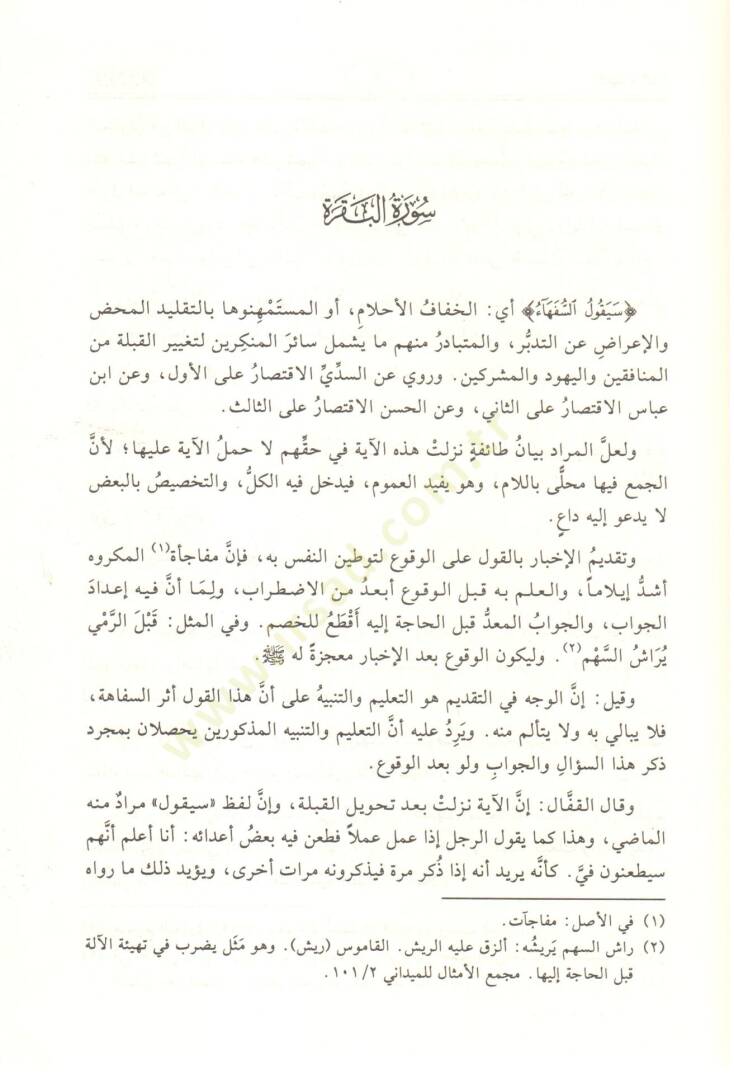 سُورَةُ البَقَرَة
﴿سَيَقُولُ ٱلسُّفَهَآءُ﴾ أي: الخفافُ الأحلامِ، أو المستَمْهِنوها بالتقليد المحض
والإعراضِ عن التدبُّر، والمتبادرُ منهم ما يشمل سائرَ المنكِرين لتغيير القبلة من
المنافقين واليهود والمشركين. وروي عن السدِّيِّ الاقتصارُ على الأول، وعن ابن
عباس الاقتصارُ على الثاني، وعن الحسن الاقتصارُ على الثالث.
ولعلَّ المراد بيانُ طائفةٍ نزلتْ هذه الآية في حقِّهم لا حملُ الآية عليها؛ لأنَّ
الجمع فيها محلًّى باللام، وهو يفيد العموم، فيدخل فيه الكلُّ، والتخصيصُ بالبعض
لا يدعو إليه داعٍ.
وتقديمُ الإخبار بالقول على الوقوع لتوطين النفس به، فإنَّ مفاجأة(١) المكروه
أشدُّ إيلاماً، والعلم به قبل الوقوع أبعدُ من الاضطراب، ولِمَا أنَّ فيه إعدادَ
الجواب، والجوابُ المعدُّ قبل الحاجة إليه أَقْطَعُ للخصم. وفي المثل: قَبْلَ الرَّمْي
يُرَاشُ السَّهْم(٢). وليكون الوقوع بعد الإخبار معجزةً له ﷺ.
وقيل: إنَّ الوجه في التقديم هو التعليم والتنبيهُ على أنَّ هذا القول أثر السفاهة،
فلا يبالي به ولا يتألم منه. ويَرِدُ عليه أنَّ التعليم والتنبيه المذكورين يحصلان بمجرد
ذكر هذا السؤالِ والجوابِ ولو بعد الوقوع.
وقال القفَّال: إنَّ الآية نزلتْ بعد تحويل القبلة، وإنَّ لفظ «سيقول» مرادٌ منه
الماضي، وهذا كما يقول الرجل إذا عمل عملاً فطعن فيه بعضُ أعدائه: أنا أعلم أنَّهم
سيطعنون فيَّ. كأنَّه يريد أنه إذا ذُكر مرة فيذكرونه مرات أخرى، ويؤيد ذلك ما رواه
(١) في الأصل: مفاجآت.
(٢) راش السهم يَريشُه: ألزق عليه الريش. القاموس (ريش). وهو مَثَل يضرب في تهيئة الآلة
قبل الحاجة إليها. مجمع الأمثال للميداني ١٠١/٢.